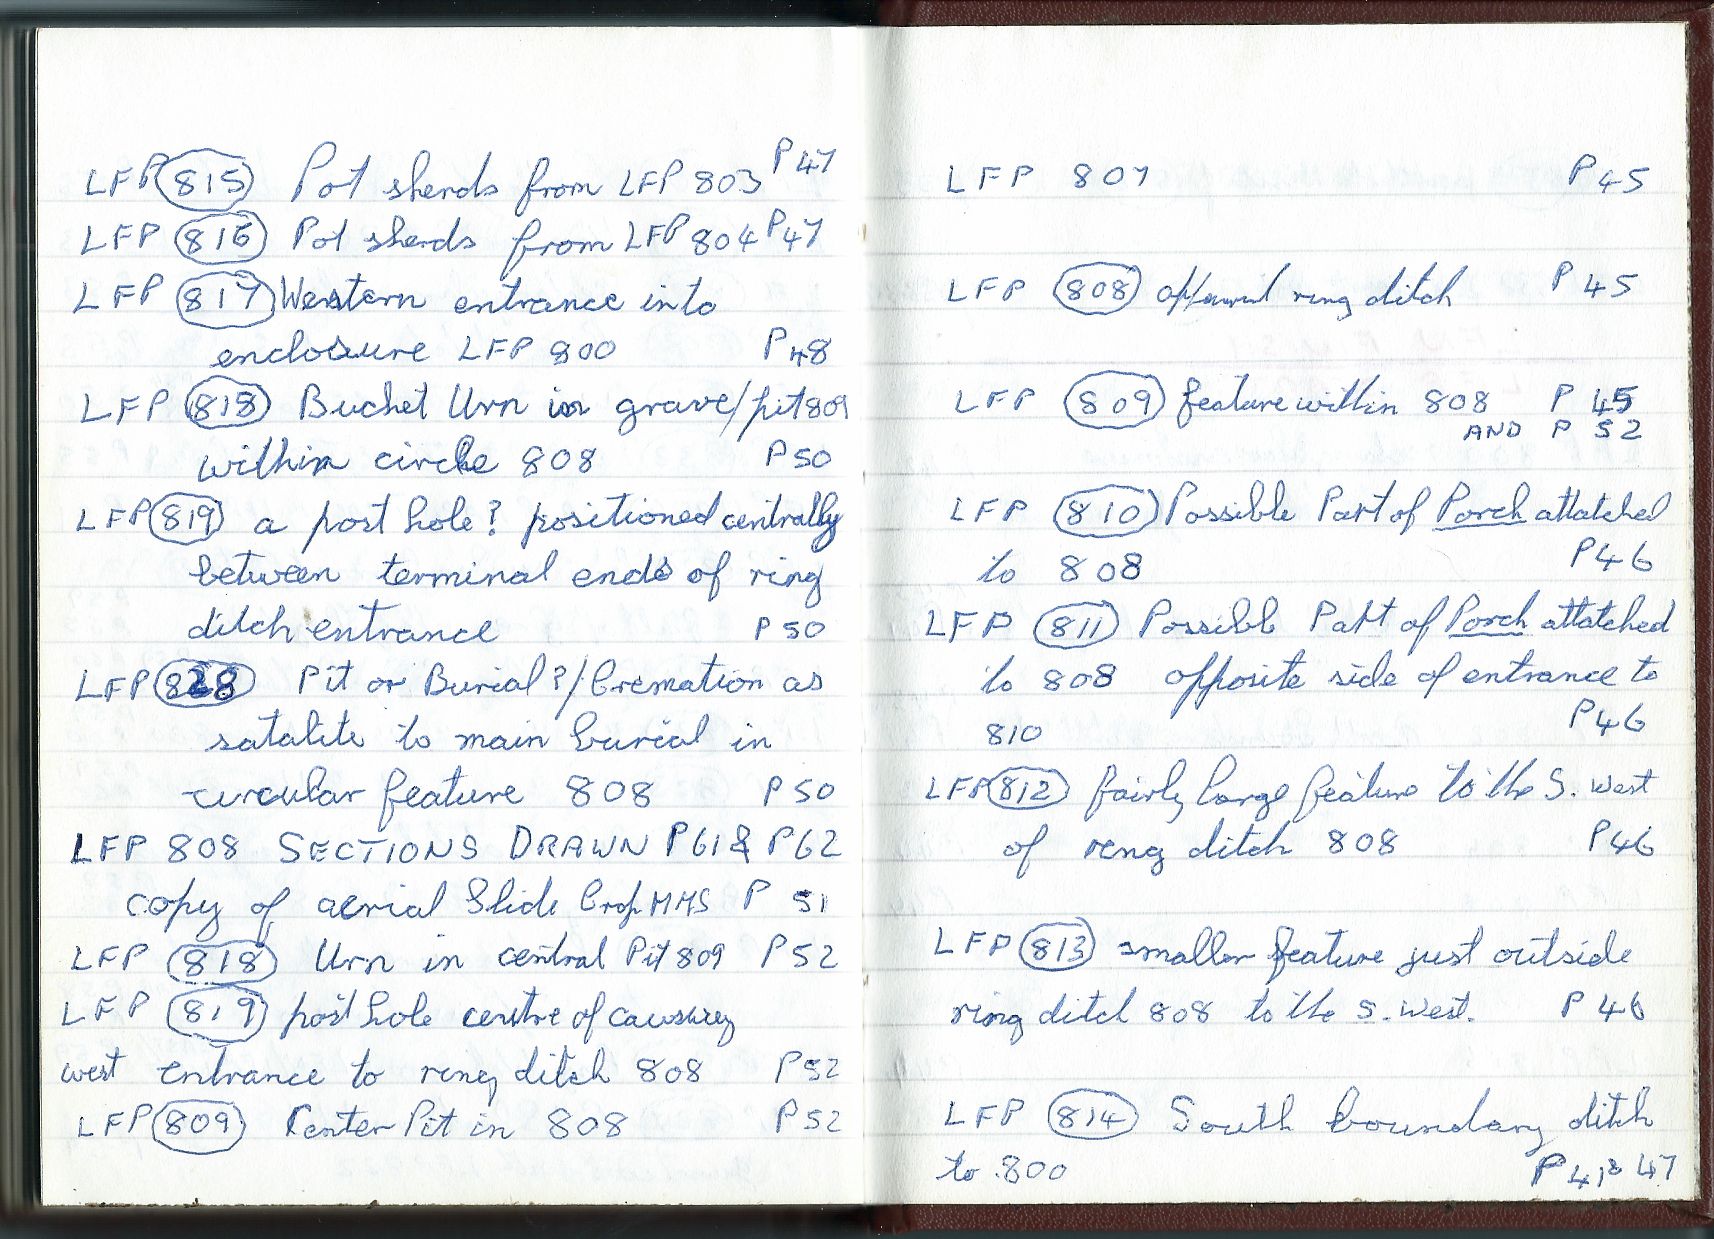 LFP 815 Pot sherds from LFP 803 P 47
LFP 816 Pot sherds from LFP 804 P 47
LFP 817 Western entrance into
enclosure LFP 800 P 48
LFP 818 Bucket Urn in grave/pit 809
within circle 808 P 50
LFP 819 a post hole? positioned centrally
between terminal ends of ring
ditch entrance P 50
LFP Pit or Burial?/Cremation as
satalite to main burial in
circular feature 808 P 50
LFP 808 SECTIONS DRAWN P61 & P62
copy of aerial Slide Crop P 51
LFP 818 Urn in central Pit 809 P 52
LFP 819 post hole centre of causway
west entrance to ring ditch 808 P 52
LFP 809 Center Pit in 808 P 52
LFP 807 P 45
LFP 808 ring ditch P 45
LFP 809 feature within 808 P 45
AND P 52
LFP 810 Possible Part of Porch attatched
to 808 P 46
LFP 811 Possible Part of Porch attatched
to 808 opposite side of entrance to
810 P 46
LFP 812 fairly large feature to the S. West
of ring ditch 808 P 46
LFP 813 smaller feature just outside
ring ditch 808 to the S. West. P 46
LFP 814 South boundary ditch
to 800 P 47